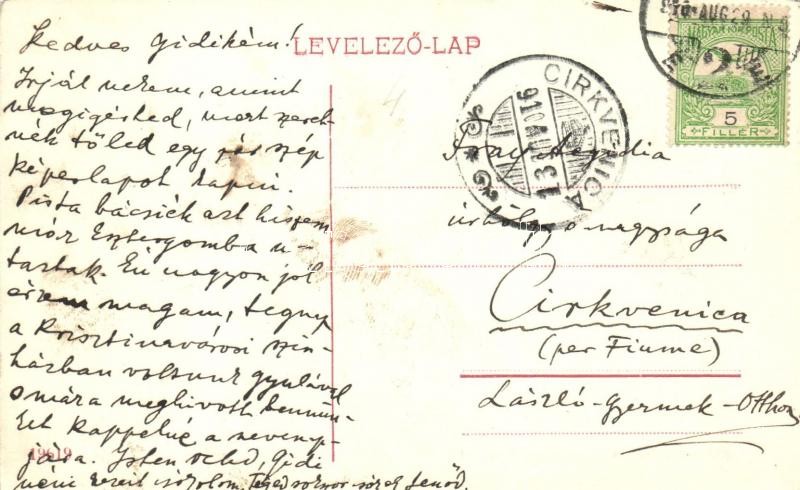 Kedves Gidikém!
LEVELEZŐ-LAP
Irjál nekem, amint
megigérted, mert szeret-
nék tőled egy pár szép
képeslapot kapni.
Pista bácsiék azt hiszem
már Esztergomba u-
taztak. Én nagyon jól
érzem magam, tegnap
a Krisztinavárosi szin-
házban voltunk Gyulával
s mára meghivott bennün-
ket Kappelné a
Isten veled, Gidi
19619
CIRKVENICA
910
13
AUG 29
MAGYAR KIR. POSTA
5
FILLÉR
úrhölgy ő nagysága
Cirkvenica
(per Fiume)
László-Gyermek-Otthon